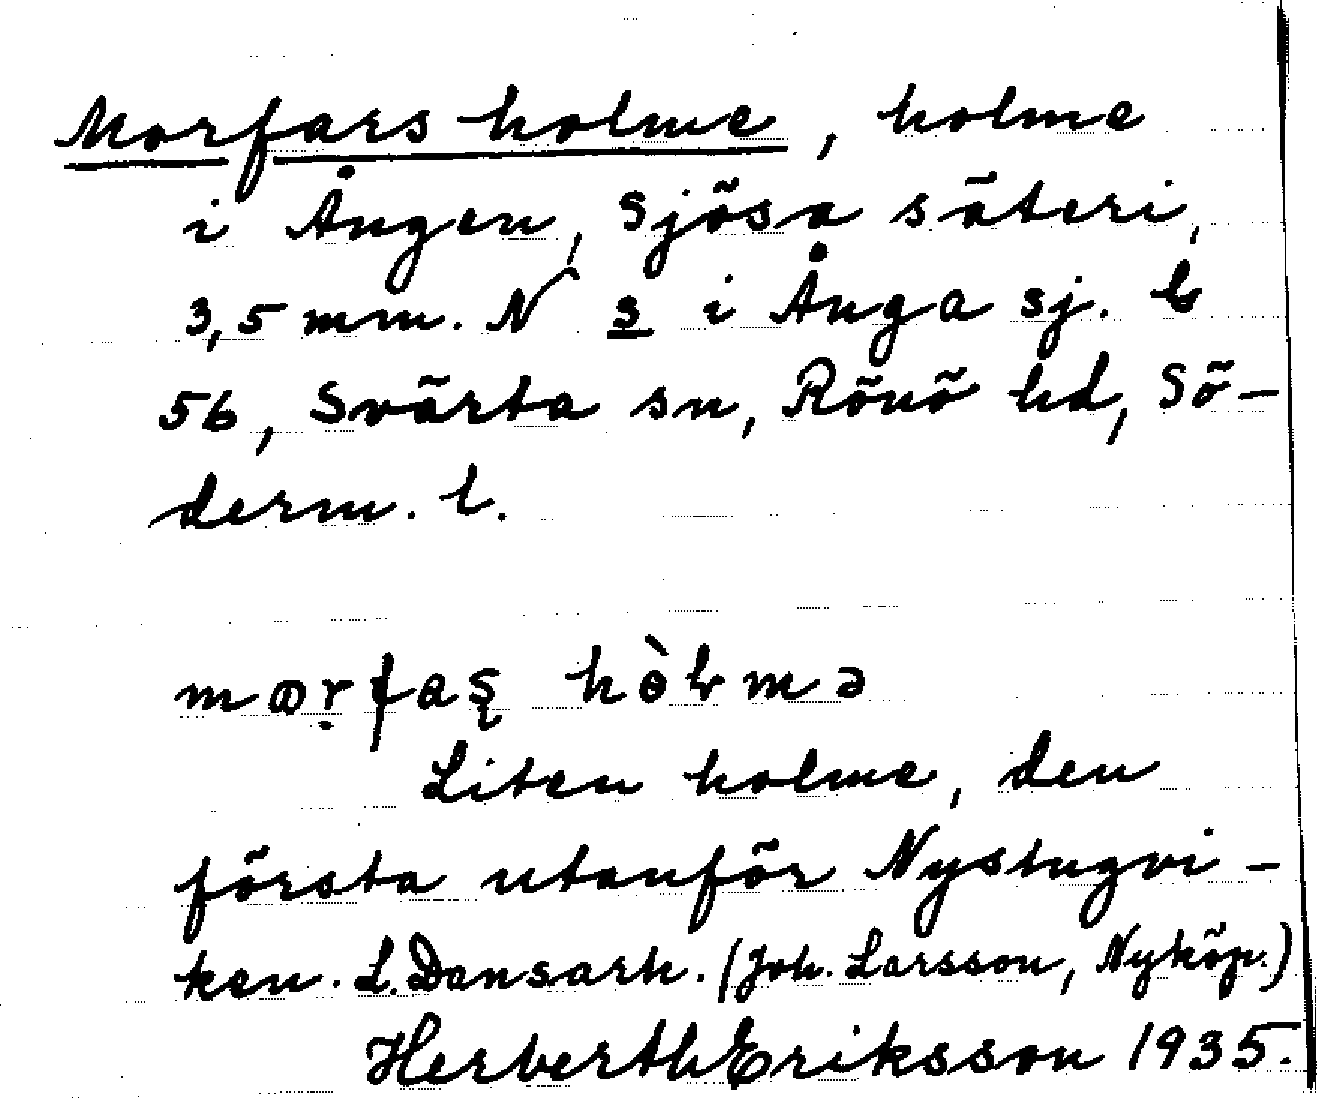 Morfars holme, holme
i Ången, Sjösa säteri,
3,5 mm. N s i Ånga sj. b
56, Svärta sn, Rönö hd, Sö-
derm. l.
hòłmə
Liten holme, den
första utanför Nystugvi-
ken. L. Dansark. (Joh. Larsson, Nyköp.)
Herberth Eriksson 1935.